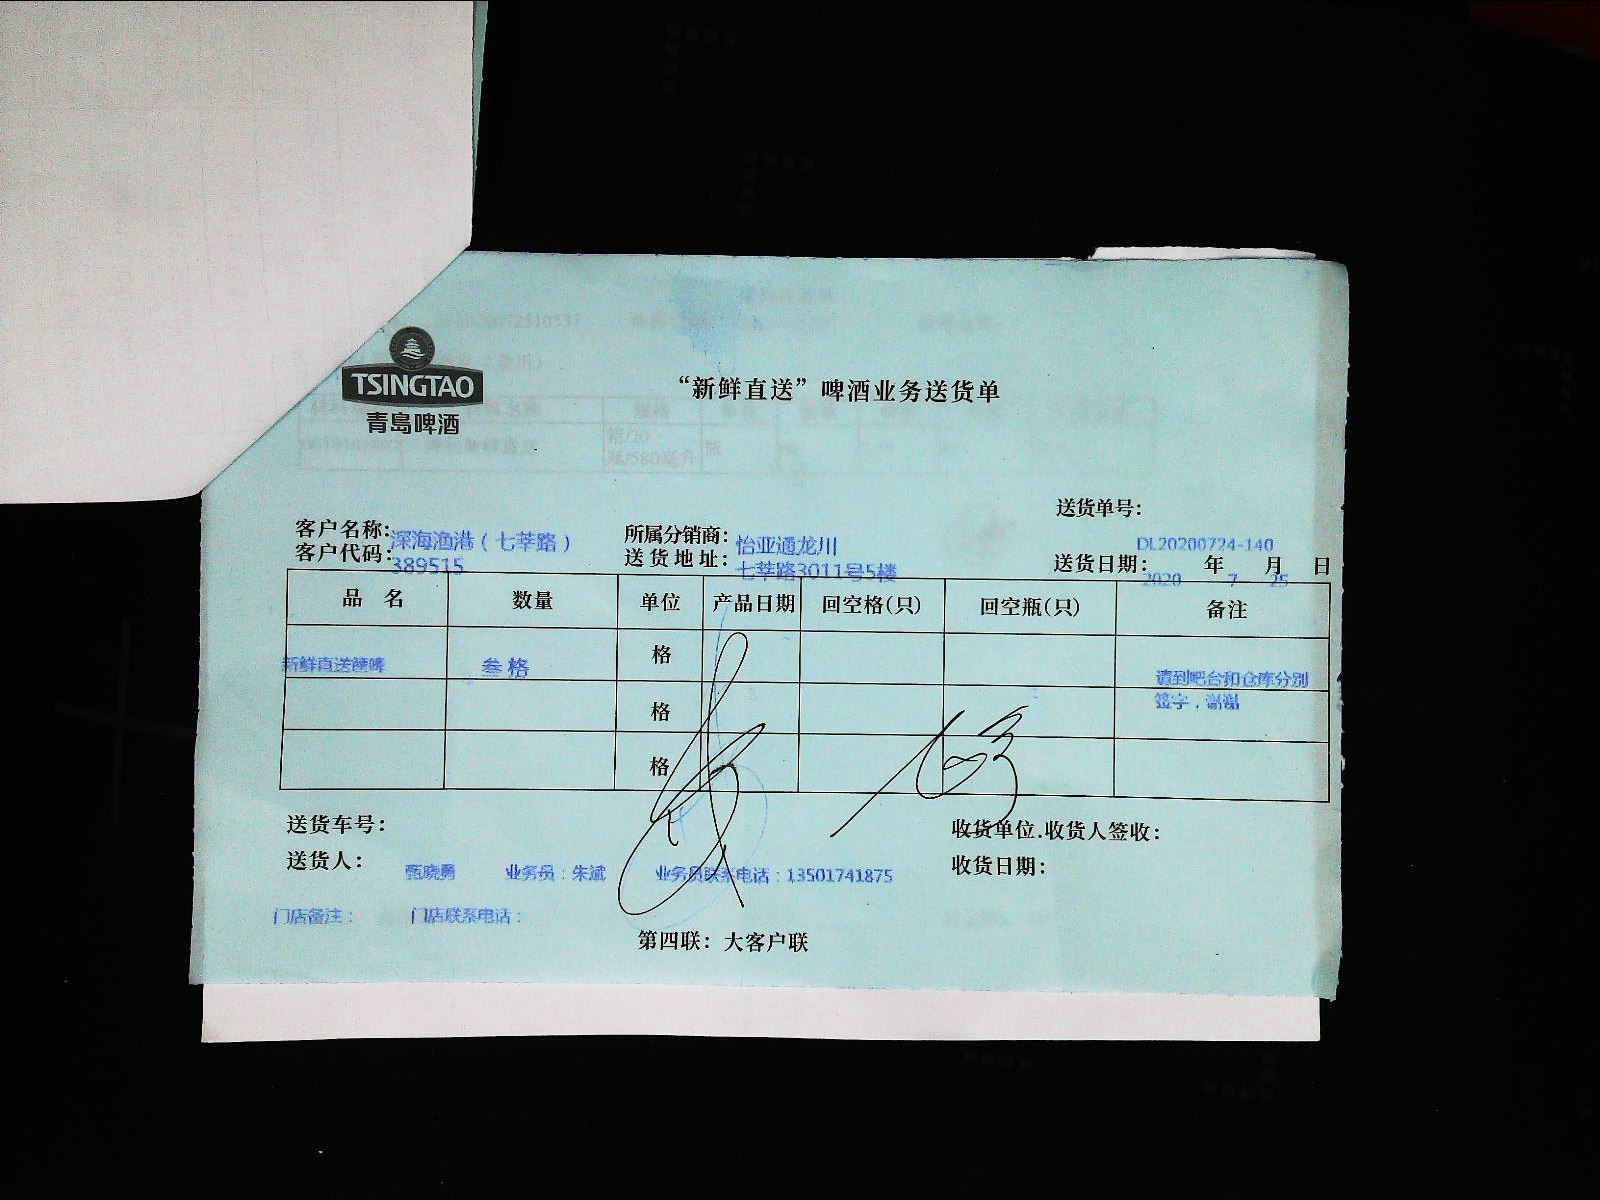 TSINGTAO
青島啤酒
“新鲜直送”啤酒业务送货单
送货单号:
DL20200724-140
客户名称: 深海渔港（七莘路） 所属分销商: 怡亚通龙川
客户代码: 389515 送货地址: 七莘路3011号5楼 送货日期: 2020 年 7 月 25 日
品 名 数量 单位 产品日期 回空格(只) 回空瓶(只) 备注
新鲜直送筐啤 叁格 格 请到吧台和仓库分别
格 签字，谢谢
格
送货车号: 收货单位.收货人签收:
送货人: 甄晓勇 业务员：朱斌 业务员联系电话：13501741875 收货日期:
门店备注： 门店联系电话：
第四联: 大客户联